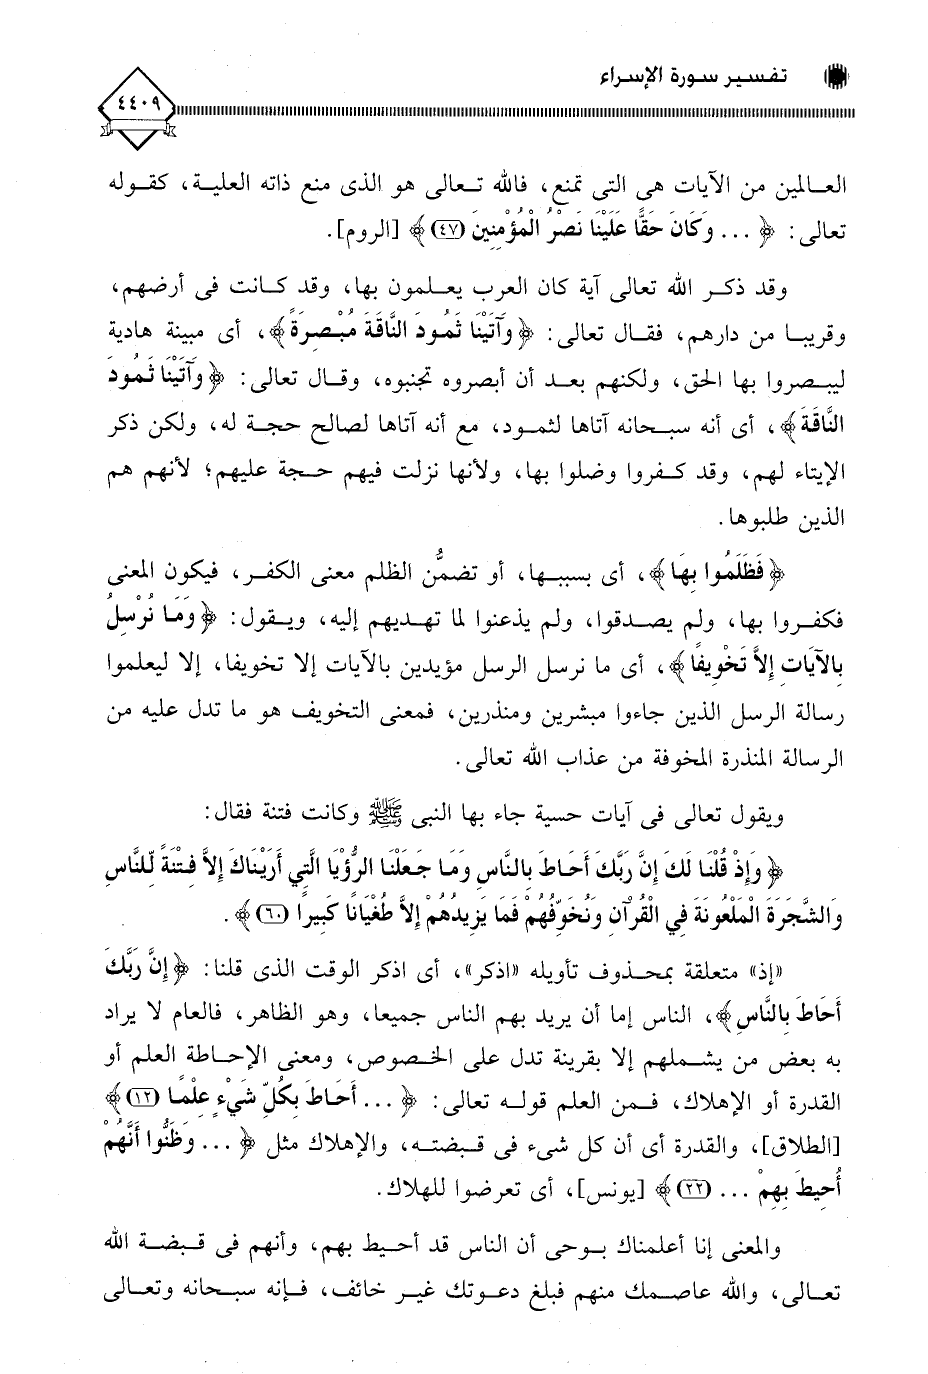 تفسير سورة الإسراء
٤٤٠٩
العالمين من الآيات هى التى تمنع، فالله تعالى هو الذى منع ذاته العلية، كقوله
تعالى: ﴿ ... وَكَانَ حَقًّا عَلَيْنَا نَصْرُ الْمُؤْمِنِينَ (٤٧)﴾ [الروم].
وقد ذكر الله تعالى آية كان العرب يعلمون بها، وقد كانت فى أرضهم،
وقريبا من دارهم، فقال تعالى: ﴿وَآتَيْنَا ثَمُودَ النَّاقَةَ مُبْصِرَةً﴾، أى مبينة هادية
ليبصروا بها الحق، ولكنهم بعد أن أبصروه تجنبوه، وقال تعالى: ﴿وَآتَيْنَا ثَمُودَ
النَّاقَةَ﴾، أى أنه سبحانه آتاها لثمود، مع أنه آتاها لصالح حجة له، ولكن ذكر
الإيتاء لهم، وقد كفروا وضلوا بها، ولأنها نزلت فيهم حجة عليهم؛ لأنهم هم
الذين طلبوها.
﴿فَظَلَمُوا بِهَا﴾، أى بسببها، أو تضمَّن الظلم معنى الكفر، فيكون المعنى
فكفروا بها، ولم يصدقوا، ولم يذعنوا لما تهديهم إليه، ويقول: ﴿وَمَا نُرْسِلُ
بِالآيَاتِ إِلاَّ تَخْوِيفًا﴾، أى ما نرسل الرسل مؤيدين بالآيات إلا تخويفا، إلا ليعلموا
رسالة الرسل الذين جاءوا مبشرين ومنذرين، فمعنى التخويف هو ما تدل عليه من
الرسالة المنذرة المخوفة من عذاب الله تعالى.
ويقول تعالى فى آيات حسية جاء بها النبى ﷺ وكانت فتنة فقال:
﴿وَإِذْ قُلْنَا لَكَ إِنَّ رَبَّكَ أَحَاطَ بِالنَّاسِ وَمَا جَعَلْنَا الرُّؤْيَا الَّتِي أَرَيْنَاكَ إِلاَّ فِتْنَةً لِّلنَّاسِ
وَالشَّجَرَةَ الْمَلْعُونَةَ فِي الْقُرْآنِ وَنُخَوِّفُهُمْ فَمَا يَزِيدُهُمْ إِلاَّ طُغْيَانًا كَبِيرًا (٦٠)﴾.
«إذ» متعلقة بمحذوف تأويله «اذكر»، أى اذكر الوقت الذى قلنا: ﴿إِنَّ رَبَّكَ
أَحَاطَ بِالنَّاسِ﴾، الناس إما أن يريد بهم الناس جميعا، وهو الظاهر، فالعام لا يراد
به بعض من يشملهم إلا بقرينة تدل على الخصوص، ومعنى الإحاطة العلم أو
القدرة أو الإهلاك، فمن العلم قوله تعالى: ﴿ ... أَحَاطَ بِكُلِّ شَيْءٍ عِلْمًا (١٢)﴾
[الطلاق]، والقدرة أى أن كل شىء فى قبضته، والإهلاك مثل ﴿ ... وَظَنُّوا أَنَّهُمْ
أُحِيطَ بِهِمْ ... (٢٢)﴾ [يونس]، أى تعرضوا للهلاك.
والمعنى إنا أعلمناك بوحى أن الناس قد أحيط بهم، وأنهم فى قبضة الله
تعالى، والله عاصمك منهم فبلغ دعوتك غير خائف، فإنه سبحانه وتعالى